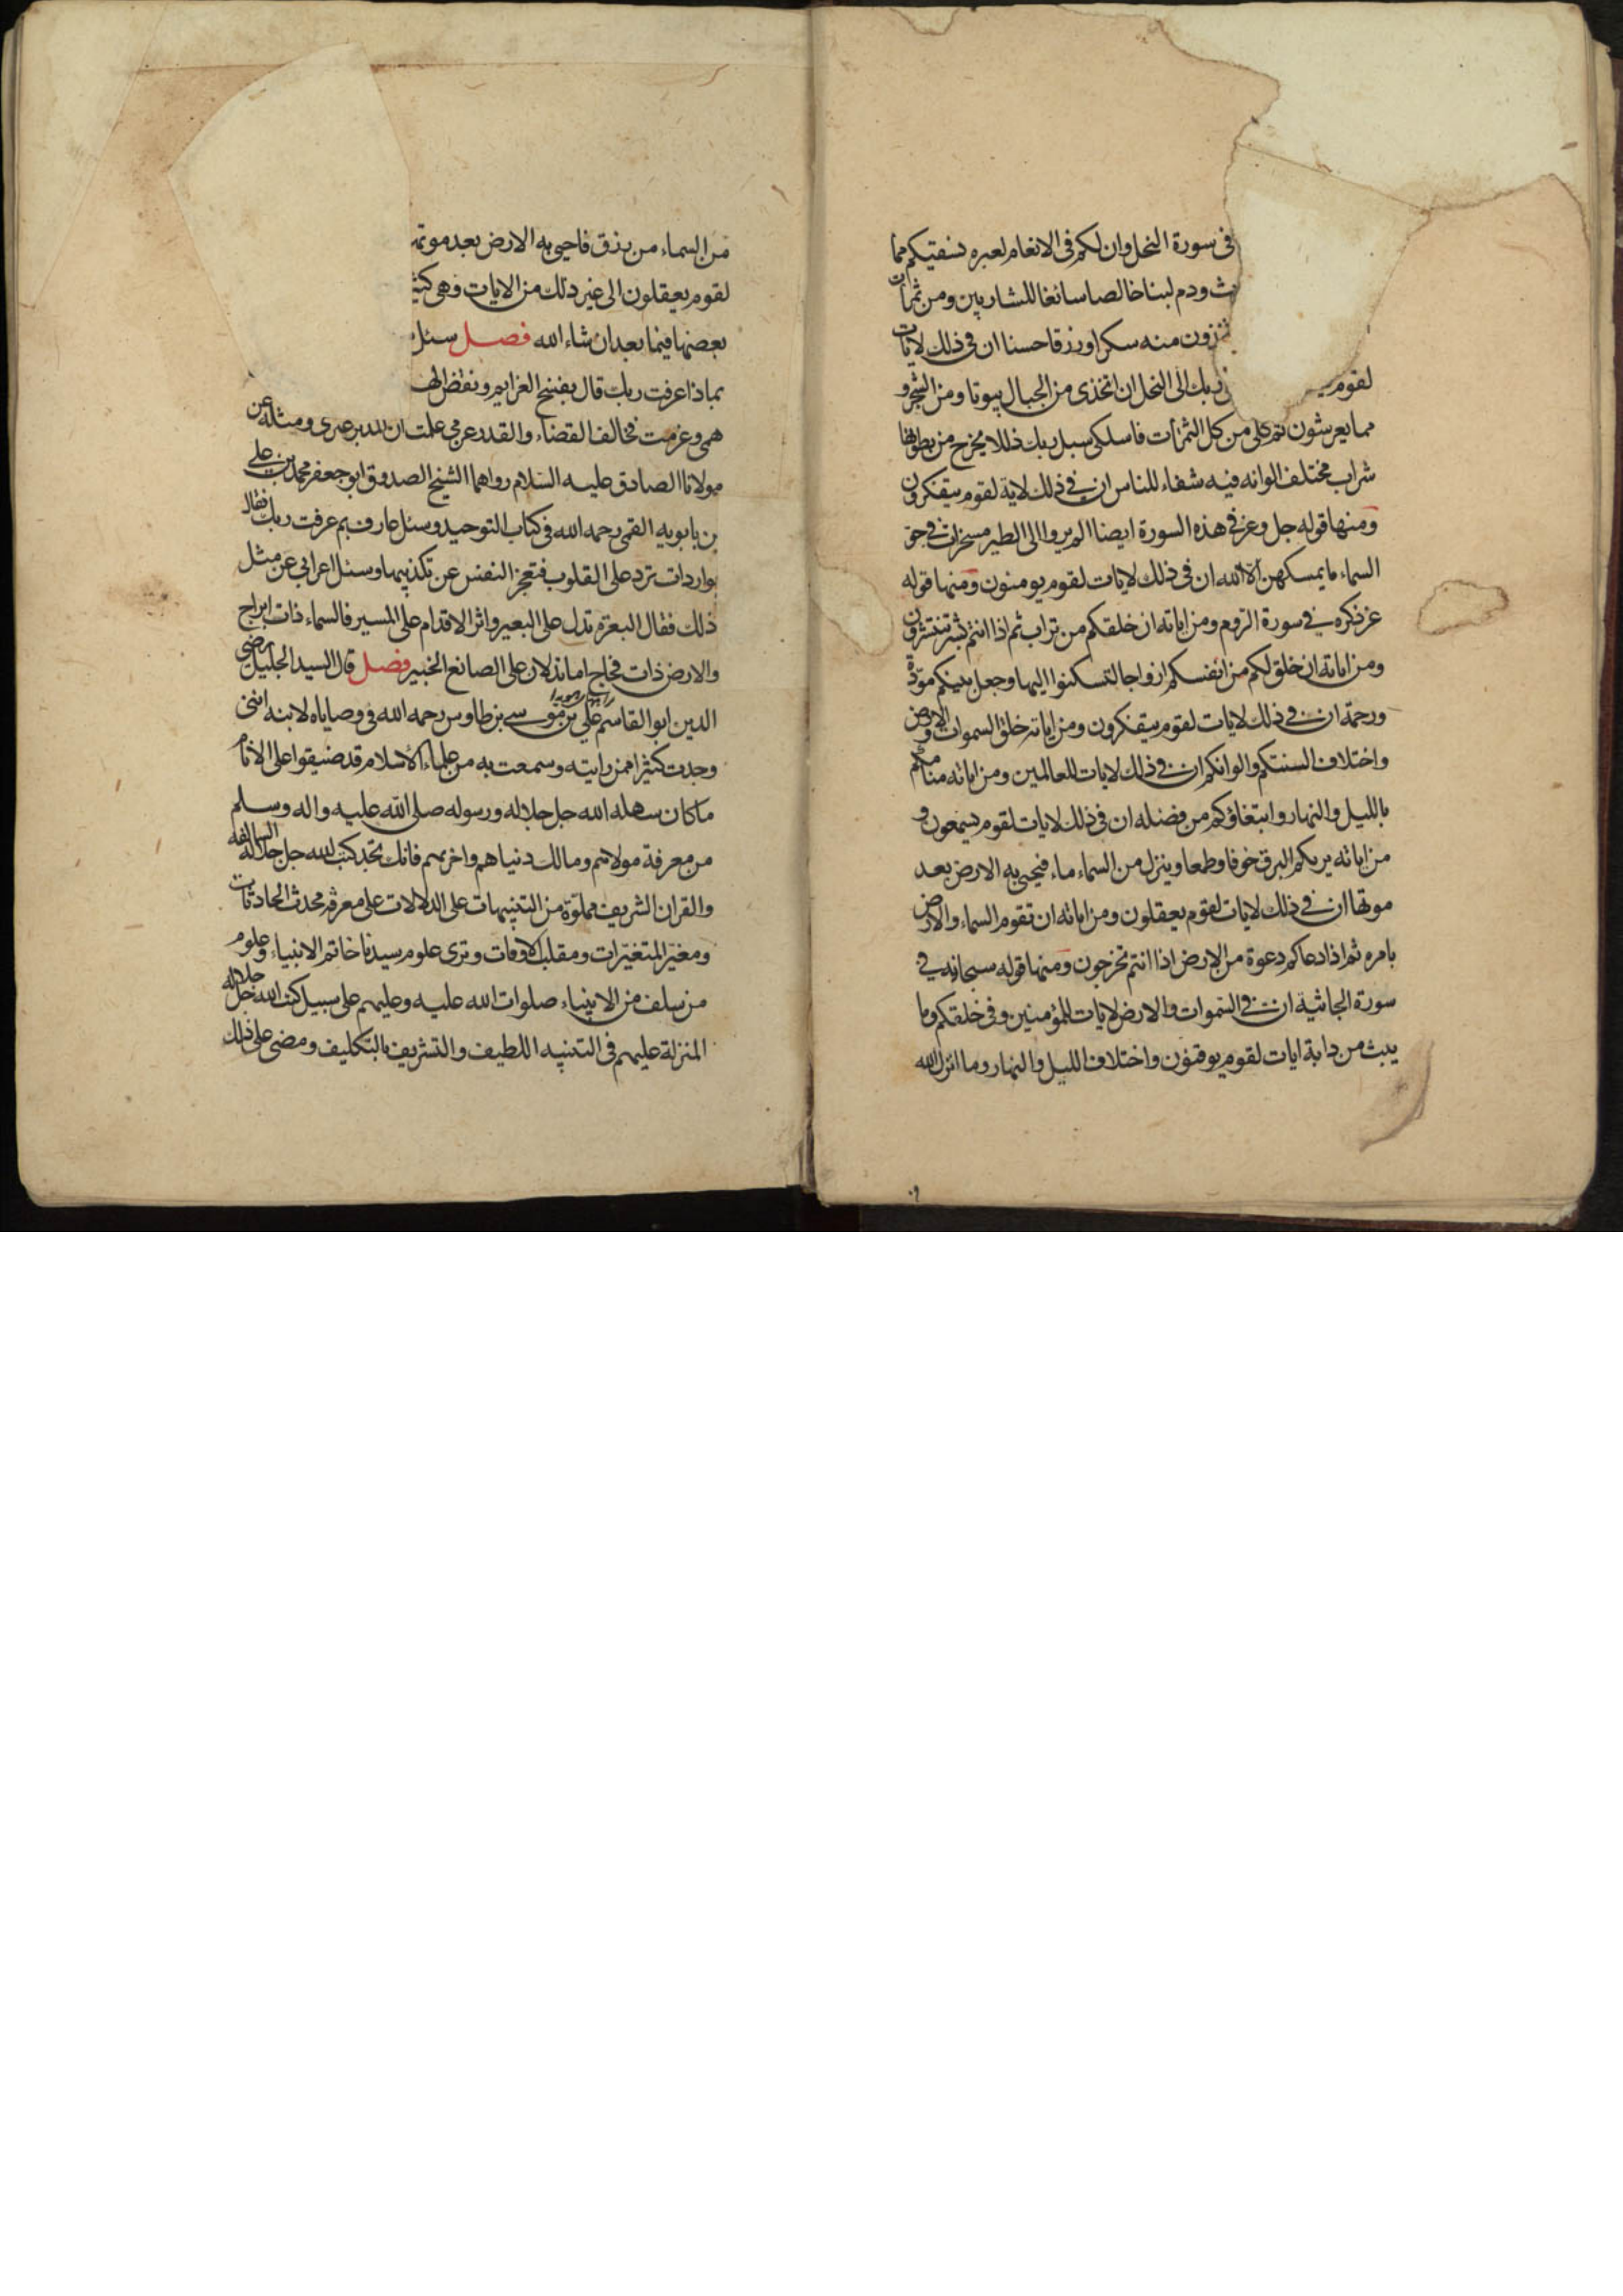 فى سورة النحل وان لكم فى الانعام لعبره نسقيكم مما
ث ودم لبنا خالصا سائغا للشاربين ومن ثمرات
ذون منه سكرا ورزقا حسنا ان فى ذلك لايات
لقوم ربك الى النحل ان اتخذى من الجبال بيوتا ومن الشجر و
مما يعرشون ثم كلى من كل الثمرات فاسلكى سبل ربك ذللا يخرج من بطونها
شراب مختلف الوانه فيه شفاء للناس ان فى ذلك لاية لقوم يتفكرون
ومنها قوله جل وعز فى هذه السورة ايضا الم يروا الى الطير مسخرات فى جو
السماء ما يمسكهن الا الله ان فى ذلك لايات لقوم يومنون ومنها قوله
عز ذكره فى سورة الروم ومن اياته ان خلقكم من تراب ثم اذا انتم بشر تنتشرون
ومن اياته ان خلق لكم من انفسكم ازواجا لتسكنوا اليها وجعل بينكم مودة
ورحمة ان فى ذلك لايات لقوم يتفكرون ومن اياته خلق السموات والارض
واختلاف السنتكم والوانكم ان فى ذلك لايات للعالمين ومن اياته منامكم
بالليل والنهار وابتغاؤكم من فضله ان فى ذلك لايات لقوم يسمعون و
من اياته يريكم البرق خوفا وطمعا وينزل من السماء ماء فيحيى به الارض بعد
موتها ان فى ذلك لايات لقوم يعقلون ومن اياته ان تقوم السماء والارض
بامره ثم اذا دعاكم دعوة من الارض اذا انتم تخرجون ومنها قوله سبحانه فى
سورة الجاثية ان فى السموات والارض لايات للمؤمنين وفى خلقكم وما
يبث من دابة ايات لقوم يوقنون واختلاف الليل والنهار وما انزل الله
من السماء من رزق فاحيى به الارض بعد موتها
لقوم يعقلون الى غير ذلك من الايات وهى كثيرة
بعضها فيما بعد ان شاء الله فصل سئل
بماذا عرفت ربك قال بفسخ العزايم ونقض الهم
همى وعزمت فخالف القضاء والقدر عزمى علمت ان المدبر غيرى ومثله عن
مولانا الصادق عليه السلام رواهما الشيخ الصدوق ابو جعفر محمد بن على
بن بابويه القمى رحمه الله فى كتاب التوحيد وسئل عارف بم عرفت ربك فقال
بواردات ترد على القلوب فتعجز النفس عن تكذيبها وسئل اعرابى عن مثل
ذلك فقال البعرة تدل على البعير واثر الاقدام على المسير فالسماء ذات ابراج
والارض ذات فجاج اما تدلان على الصانع الخبير فصل قال السيد الجليل رضى
الدين ابو القاسم على بن موسى بن طاوس رحمه الله فى وصاياه لابنه اننى
وجدت كثيرا ممن رايته وسمعت به من علماء الاسلام قد ضيقوا على الانام
ما كان سهله الله جل جلاله ورسوله صلى الله عليه واله وسلم
من معرفة مولاهم ومالك دنياهم واخريهم فانك تجد كتب الله جل جلاله السالفة
والقران الشريف مملوة من التنبيهات على الدلالات على معرفة محدث الحادثات
ومغير المتغيرات ومقلب الاوقات وترى علوم سيدنا خاتم الانبياء وعلوم
من سلف من الانبياء صلوات الله عليه وعليهم على سبيل كتب الله جل جلاله
المنزلة عليهم فى التنبيه اللطيف والتشريف بالتكليف ومضى على ذلك